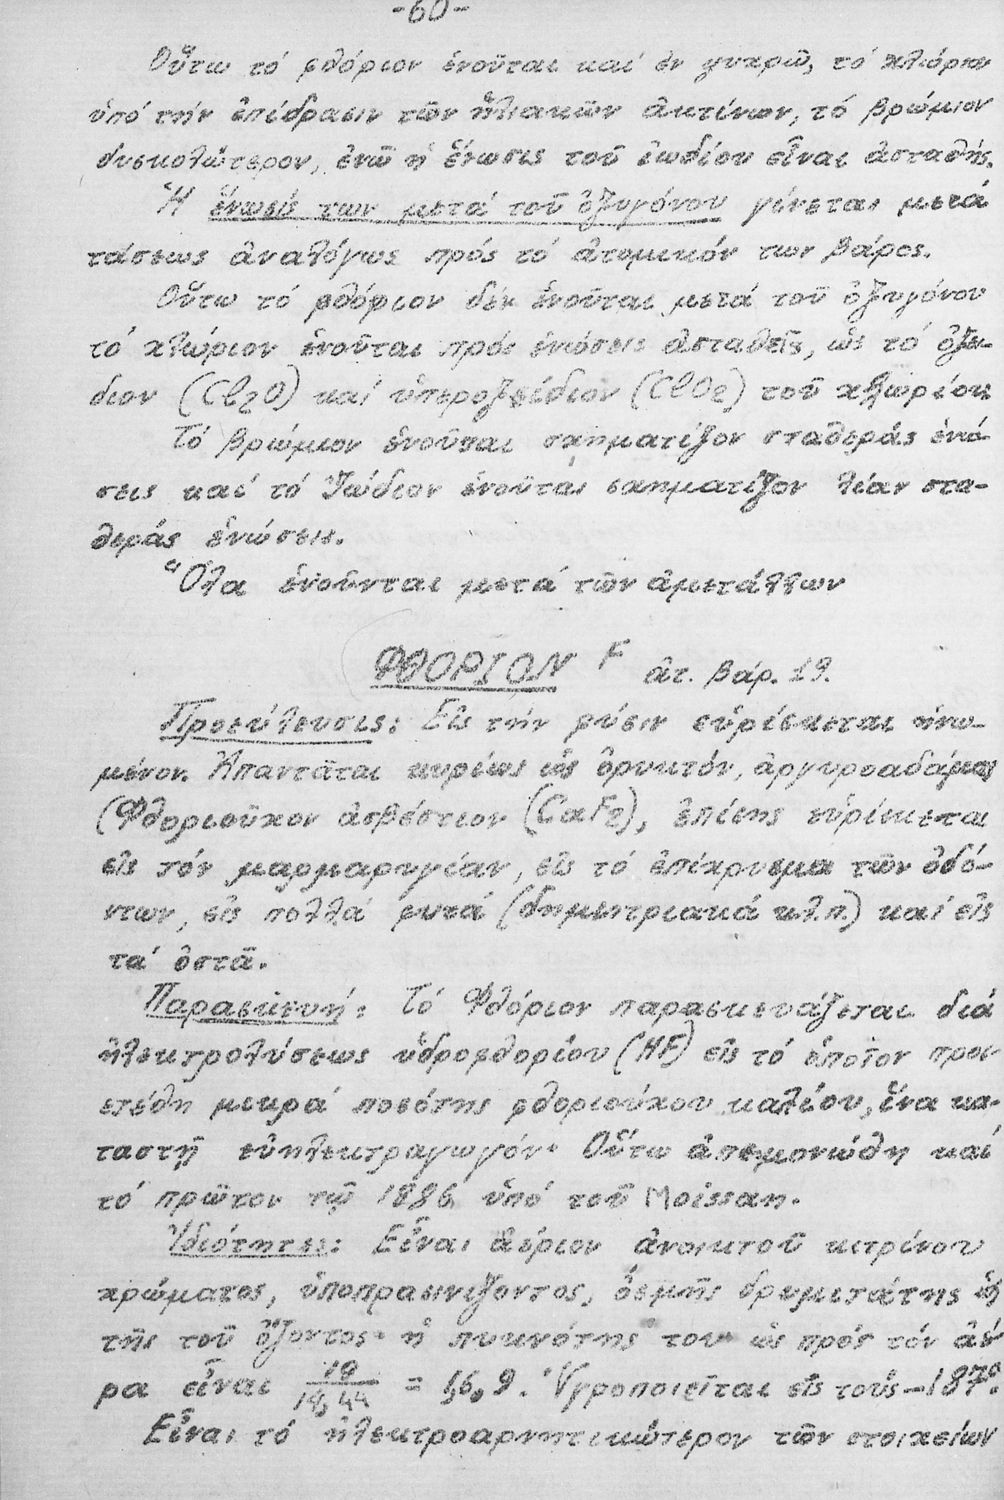 -60-
Οὕτω τό φθόριον ἑνοῦται καί ἐν ψυχρῷ, τό χλώριον
ὑπό τήν ἐπίδρασιν τῶν ἡλιακῶν ἀκτίνων, τό βρώμιον
δυσκολώτερον, ἐνῶ ἡ ἕνωσις τοῦ ἰωδίου εἶναι ἀσταθής.
Ἡ ἕνωσίς των μετά τοῦ ὀξυγόνου γίνεται μετά
τάσεως ἀναλόγως πρός τό ἀτομικόν των βάρος.
Οὕτω τό φθόριον δέν ἑνοῦται μετά τοῦ ὀξυγόνου
τό χλώριον ἑνοῦται πρός ἑνώσεις ἀσταθεῖς, ὡς τό ὀξεί-
διον (Cl2O) καί ὑπεροξείδιον (ClO2) τοῦ χλωρίου
Τό βρώμιον ἑνοῦται σχηματίζον σταθεράς ἑνώ-
σεις καί τό Ἰώδιον ἑνοῦται σχηματίζον λίαν στα-
θεράς ἑνώσεις.
Ὅλα ἑνοῦνται μετά τῶν ἀμετάλλων
ΦΘΟΡΙΟΝ F ἀτ. βάρ. 19.
Προέλευσις: Εἰς τήν φύσιν εὑρίσκεται ἡνω-
μένον. Ἀπαντᾶται κυρίως ὡς ὀρυκτόν, ἀργυροαδάμας
(Φθοριοῦχον ἀσβέστιον (CaF2), ἐπίσης εὑρίσκεται
εἰς τόν μαρμαρυγίαν, εἰς τό ἐπίχρυσμα τῶν ὀδό-
ντων, εἰς πολλά φυτά (δημητριακά κλ.π.) καί εἰς
τά ὀστᾶ.
Παρασκευή: Τό Φθόριον παρασκευάζεται διά
ἠλεκτρολύσεως ὑδροφθορίου (HF) εἰς τό ὁποῖον προσ
ετέθη μικρά ποσότης φθοριούχου καλίου, ἵνα κα-
ταστῇ εὐηλεκτραγωγόν. Οὕτω ἀπεμονώθη καί
τό πρῶτον τῷ 1886 ὑπό τοῦ Moissan.
Ἰδιότητες: Εἶναι ἀέριον ἀνοικτοῦ κιτρίνου
χρώματος, ὑποπρασινίζοντος, ὀσμῆς δριμυτάτης ὡς
τῆς τοῦ ὄζοντος· ἡ πυκνότης του ὡς πρός τόν ἀέ
ρα εἶναι 19/14,44 = 1,6,9. Ὑγροποιεῖται εἰς τούς -187°.
Εἶναι τό ἠλεκτροαρνητικώτερον τῶν στοιχείων